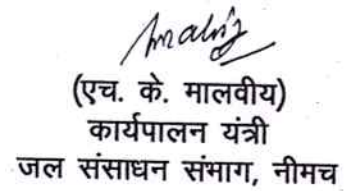 (एच. के. मालवीय)
कार्यपालन यंत्री
जल संसाधन संभाग, नीमच